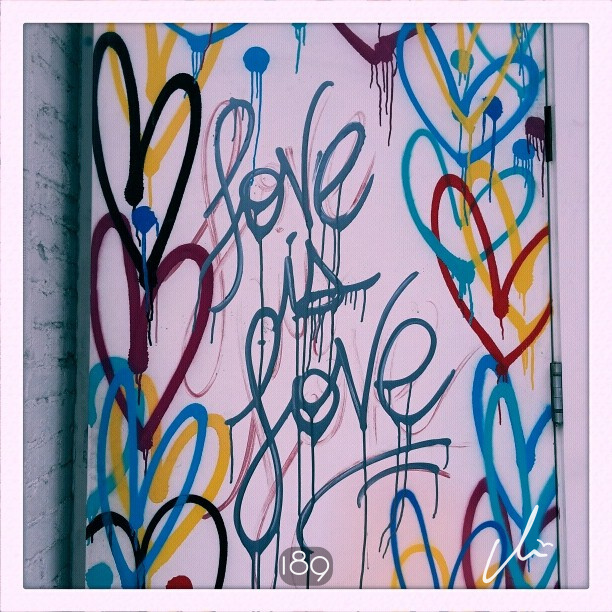 love
is
love
189